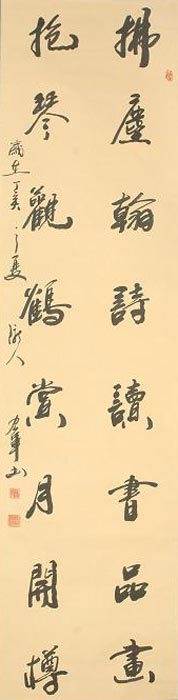 拂塵翰詩讀書品畫
抱琴觀鶴賞月開樽
歲在丁亥之夏